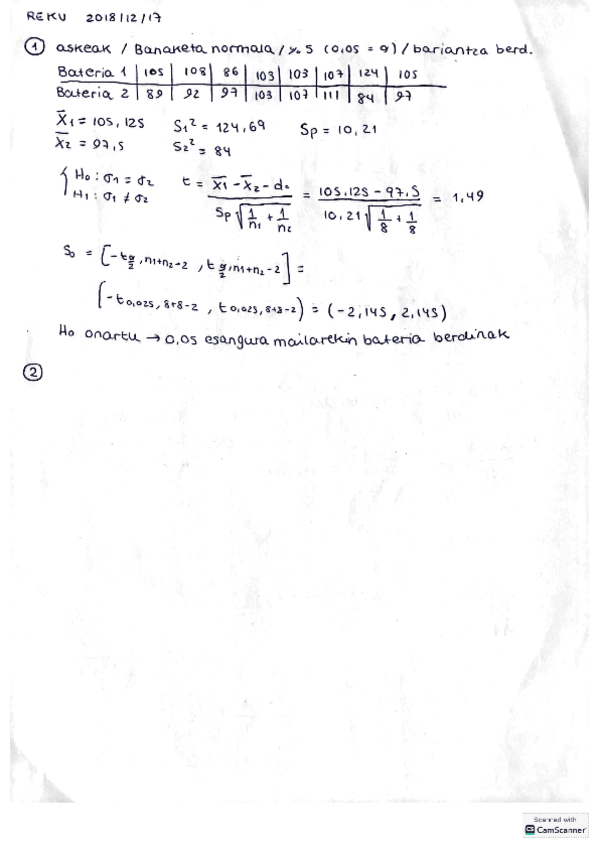 REKU 2018/12/17
① askeak / Banaketa normala / %5 (0,05 = α) / bariantza berd.
Bateria 1 | 105 | 108 | 86 | 103 | 103 | 107 | 124 | 105
Bateria 2 | 89 | 92 | 97 | 103 | 107 | 111 | 84 | 97
X̄1 = 105,125 S1² = 124,69 Sp = 10,21
X̄2 = 97,5 S2² = 84
{ H0: σ1 = σ2 t = (X̄1 - X̄2 - d0) / (Sp √(1/n1 + 1/n2)) = (105,125 - 97,5) / (10,21 √(1/8 + 1/8)) = 1,49
H1: σ1 ≠ σ2
S0 = [-t α/2, n1+n2-2 , t α/2, n1+n2-2] =
(-t 0,025, 8+8-2 , t 0,025, 8+8-2) = (-2,145, 2,145)
H0 onartu → 0,05 esangura mailarekin bateria berdinak
②
Scanned with
CS CamScanner